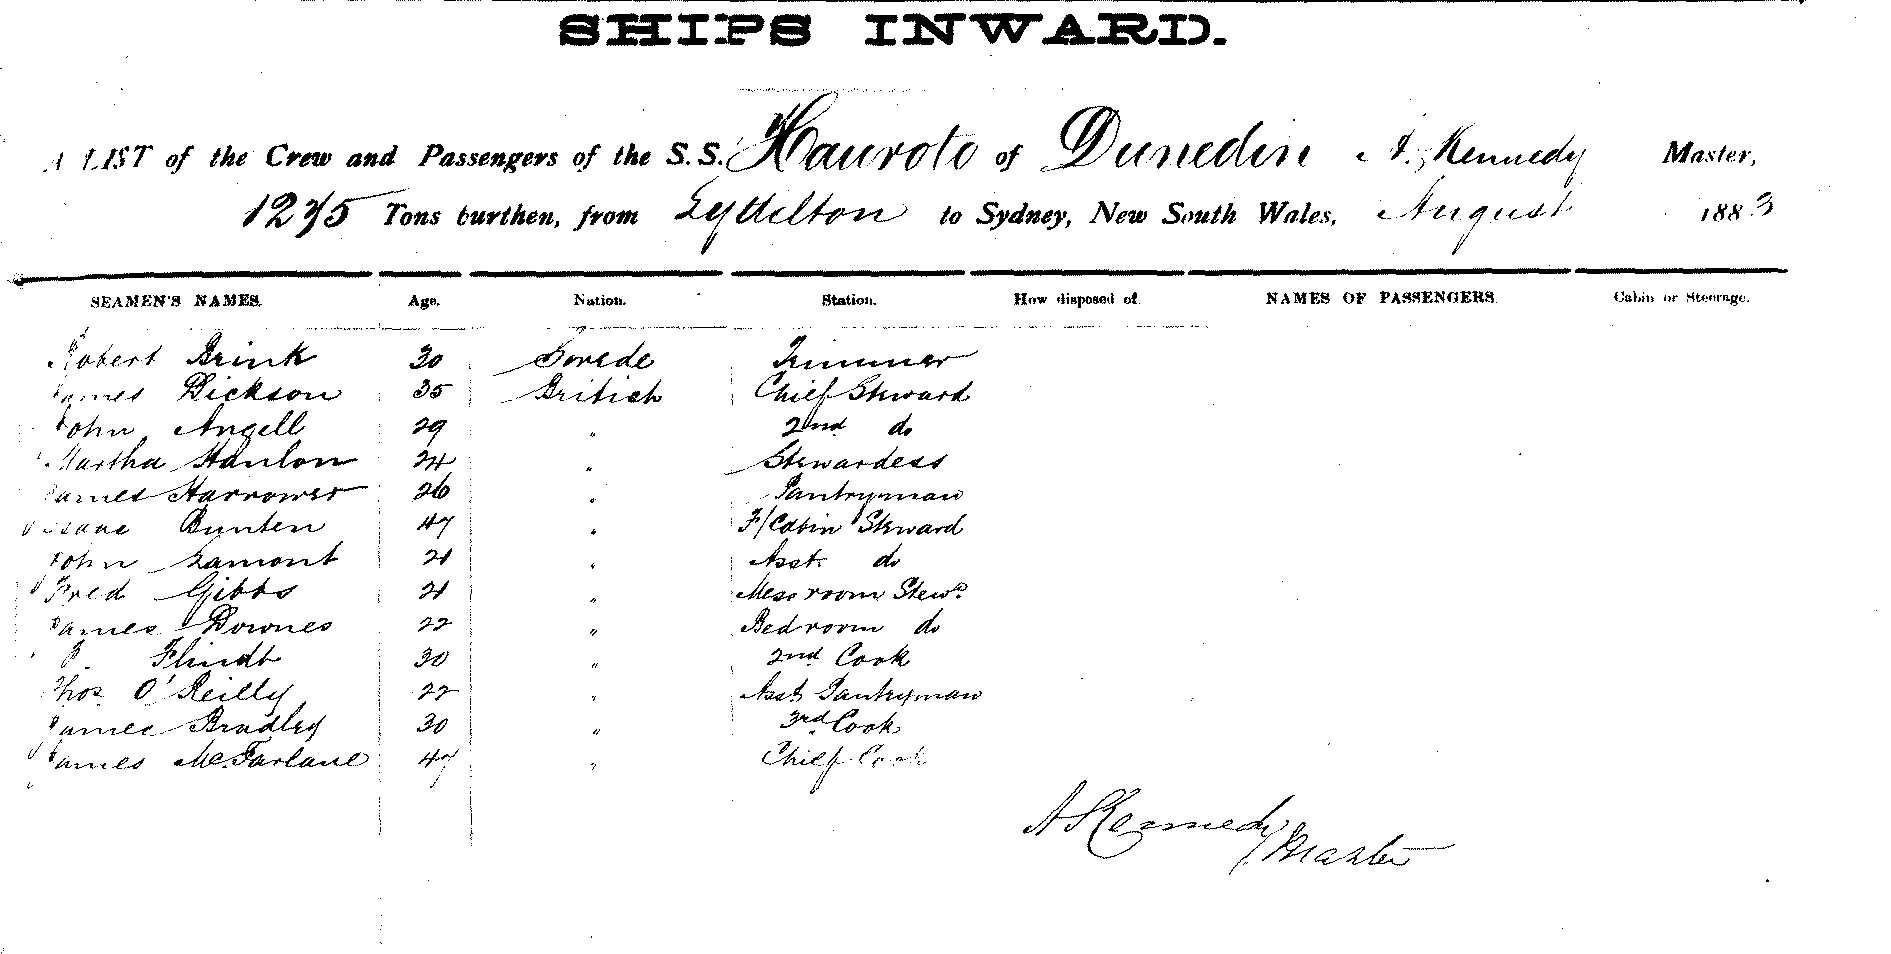 SHIPS INWARD.
A LIST of the Crew and Passengers of the S.S. Hauroto of Dunedin A. Kennedy Master,
1275 Tons burthen, from Lyttelton to Sydney, New South Wales, August 1883
SEAMEN'S NAMES. Age. Nation. Station. How disposed of. NAMES OF PASSENGERS. Cabin or Steerage.
Robert Brink 30 Swede Trimmer
James Dickson 35 British Chief Steward
John Angell 29 " 2nd do
Martha Hanlon 24 " Stewardess
James Harrower 26 " Pantryman
Isaac Bunten 47 " F/Cabin Steward
John Lamont 21 " Asst. do
Fred Gibbs 21 " Mess room Stewd
James Downes 22 " Bedroom do
Flindt 30 " 2nd Cook
Thos O'Reilly 22 " Asst Pantryman
James Bradley 30 " 3rd Cook
James McFarlane 47 " Chief Cook
A Kennedy
Master